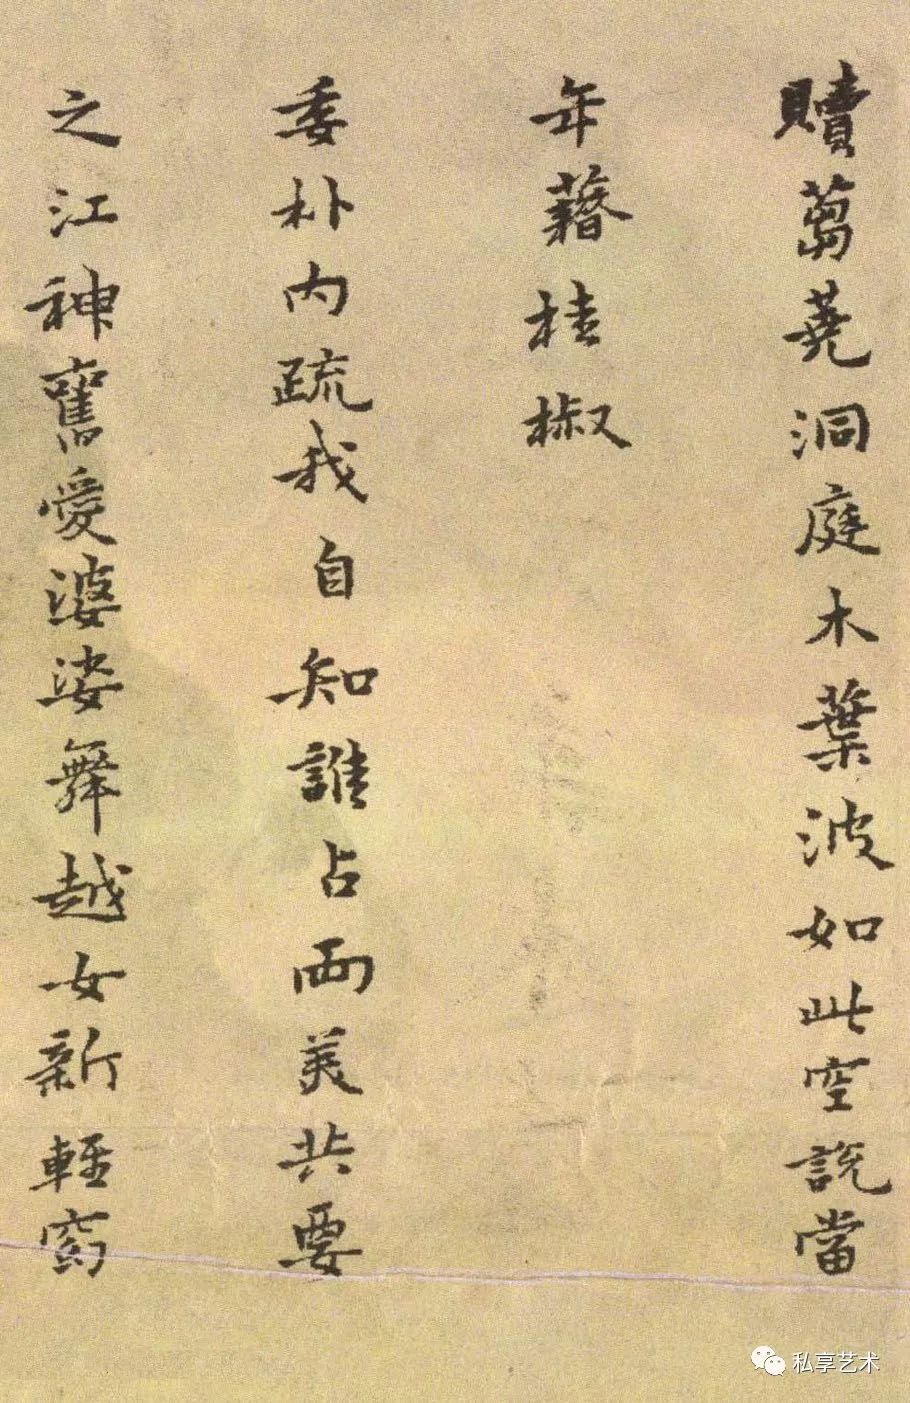 贖蒭蕘洞庭木葉波如此空說當
年藉桂椒
委朴内疏我自知誰占兩美共要
之江神舊愛婆娑舞越女新輕窈
私享艺术